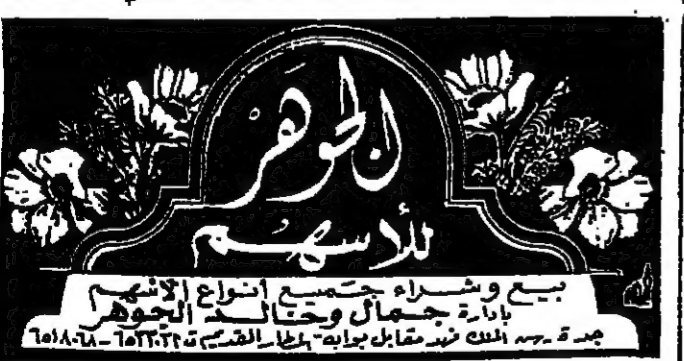 الجوهر
للأسهم
بيع وشراء جميع أنواع الأسهم
بإدارة جمال وخالد الجوهر
جدة - الملك فهد مقابل بوابة المطار القديم ت ٦٥٣٢٠٣٢ - ٦٥١٨٠٦٨